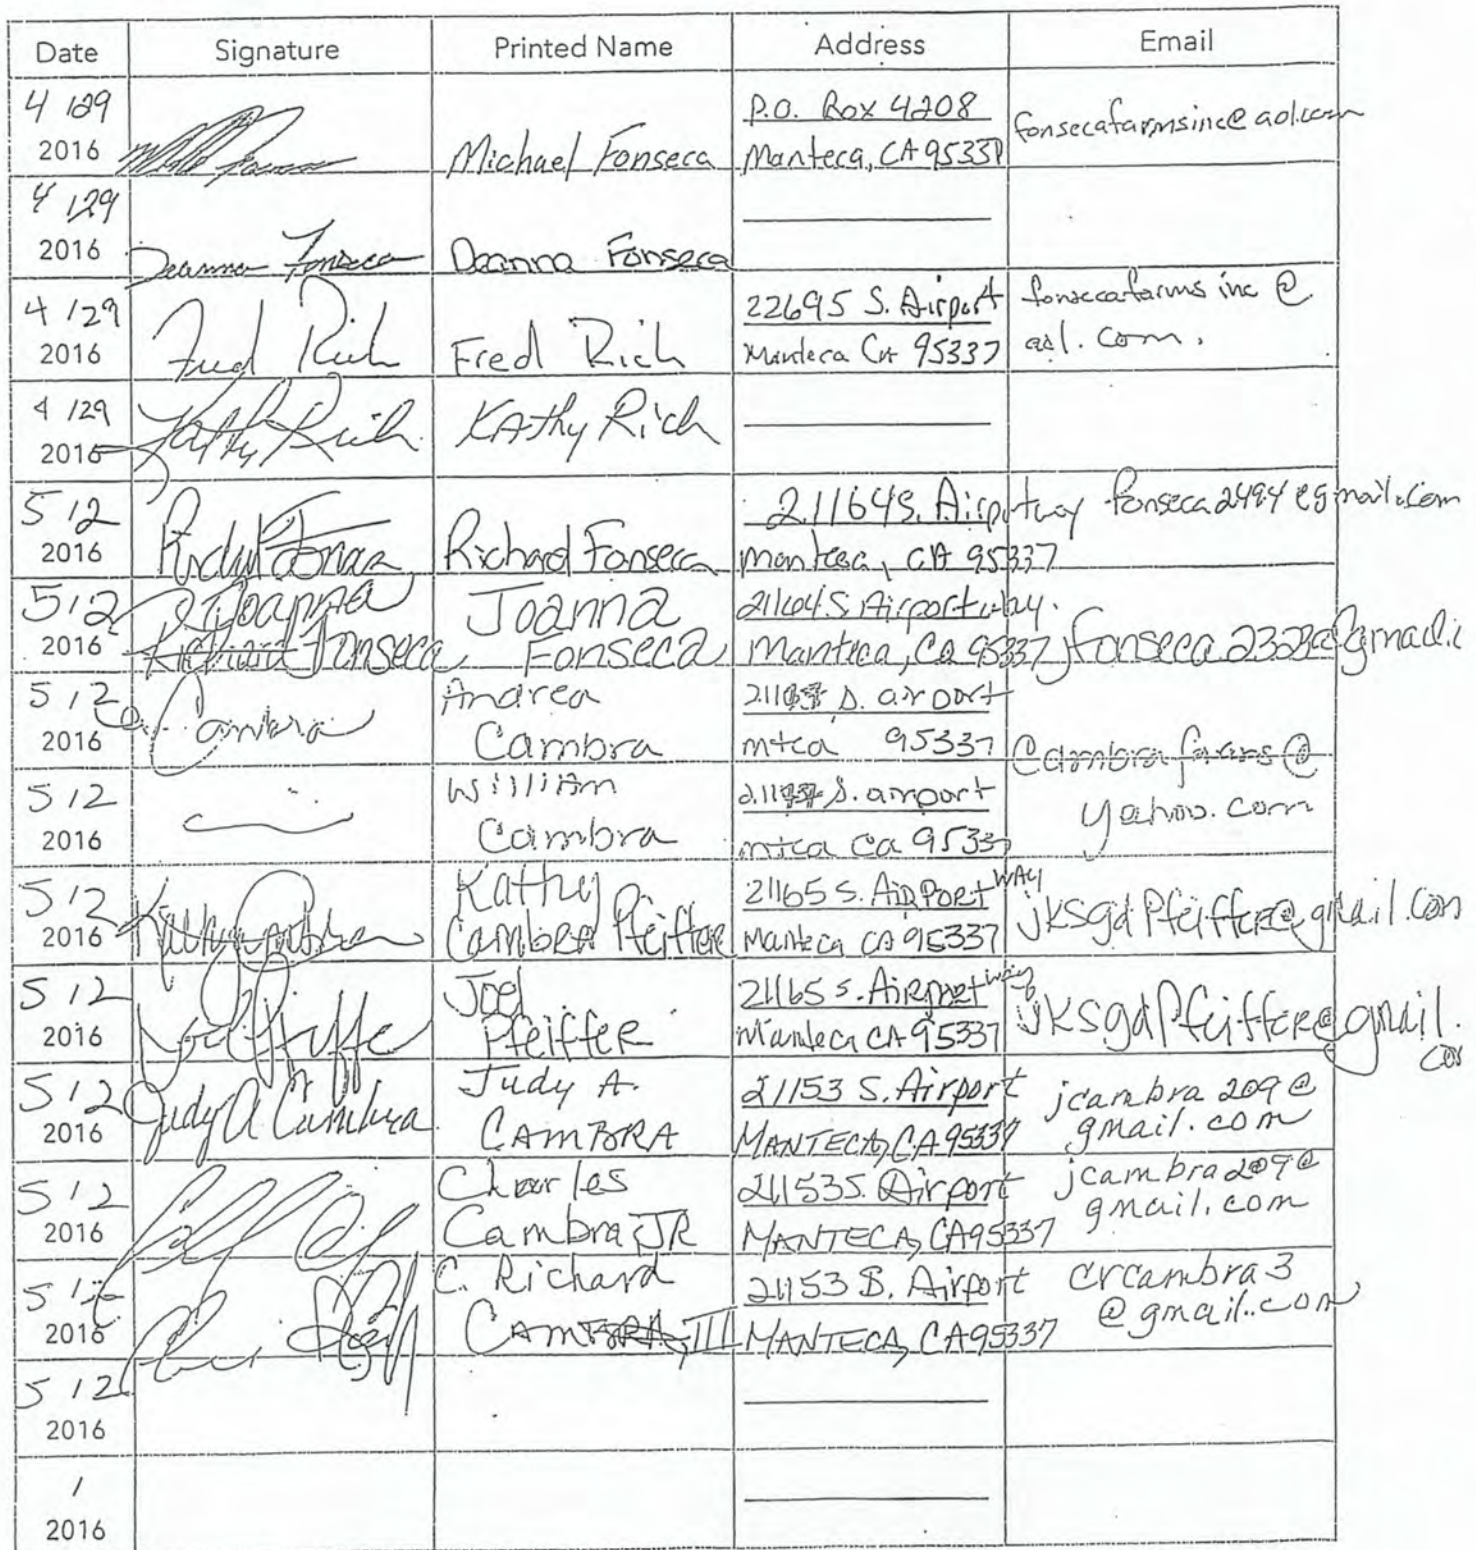 Date Signature Printed Name Address Email
4/29
2016
Michael Fonseca
P.O. Box 4208
Manteca, CA 9533
fonsecafarmsinc@aol.com
4/29
2016
Deanna Fonseca
Deanna Fonseca
4/29
2016
Fred Rich
Fred Rich
22695 S. Airport
Manteca CA 95337
fonsecafarms inc @
aol. com.
4/29
2016
Kathy Rich
KAthy Rich
5/2
2016
Richard Fonseca
21164 S. Airportway
Manteca, CA 95337
fonseca2494@gmail.com
5/2
2016
Joanna
Richard Fonseca
Joanna
Fonseca
21164 S Airportway.
Manteca, Ca 95337
5/2
2016
a. Cambra
Andrea
Cambra
S. airport
mtca 95337
Cambrafarms@
yahoo.com
5/2
2016
William
Cambra
S. airport
mtca Ca 9533
5/2
2016
Kathy
Cambra Pfeiffer
21165 S. AiRPoRt WAY
Manteca CA 95337
jksgdPfeiffer@gmail.com
5/2
2016
Joel Pfeiffe
Joel
Pfeiffer
21165 S. AiRport way
Manteca CA 95337
jksgdPfeiffer@gmail.
com
5/2
2016
Judy A Cambra
Judy A.
CAMBRA
21153 S. Airport
MANTECA, CA 95337
jcambra 209@
gmail.com
5/2
2016
Charles
Cambra, JR
21153 S. Airport
MANTECA, CA 95337
jcambra 209@
gmail.com
5/2
2016
C. Richard
CAMBRA, III
21153 S. Airport
MANTECA, CA 95337
crcambra3
@gmail.com
5/2
2016
/
2016